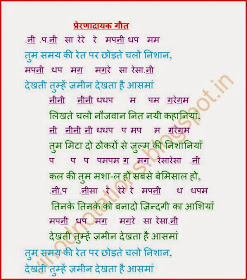 प्रेरणादायक गीत
.नी .प.नी सा रेरे रे मपनी धप मम
तुम समय की रेत पर छोड़ते चलो निशान,
मपनी धप मग मगरे सा रेसा.नी
देखती तुम्हें ज़मीन देखता है आसमां
नीनी नीनीनी धधप म पम गरेगम
लिखते चलो नौजवान नित नयी कहानियां,
नीनी नीनी नीनी धप प मप म गरेगम
तुम मिटा दो ठोकरों से जुल्म की निशानियाँ
प प प पमपम ग मग रेसारेसा नी
कल की तुम मशाल हो सबसे बेमिसाल हो,
.नी.प .नीसा रे रेरे रे मपनी ध धपम
तिनके तिनके को बनादो ज़िन्दगी का आशियाँ
मपनी धप मग मगरे सा रेसा.नी
देखती तुम्हें ज़मीन देखता है आसमां
तुम समय की रेत पर छोड़ते चलो निशान,
देखती तुम्हें ज़मीन देखता है आसमां